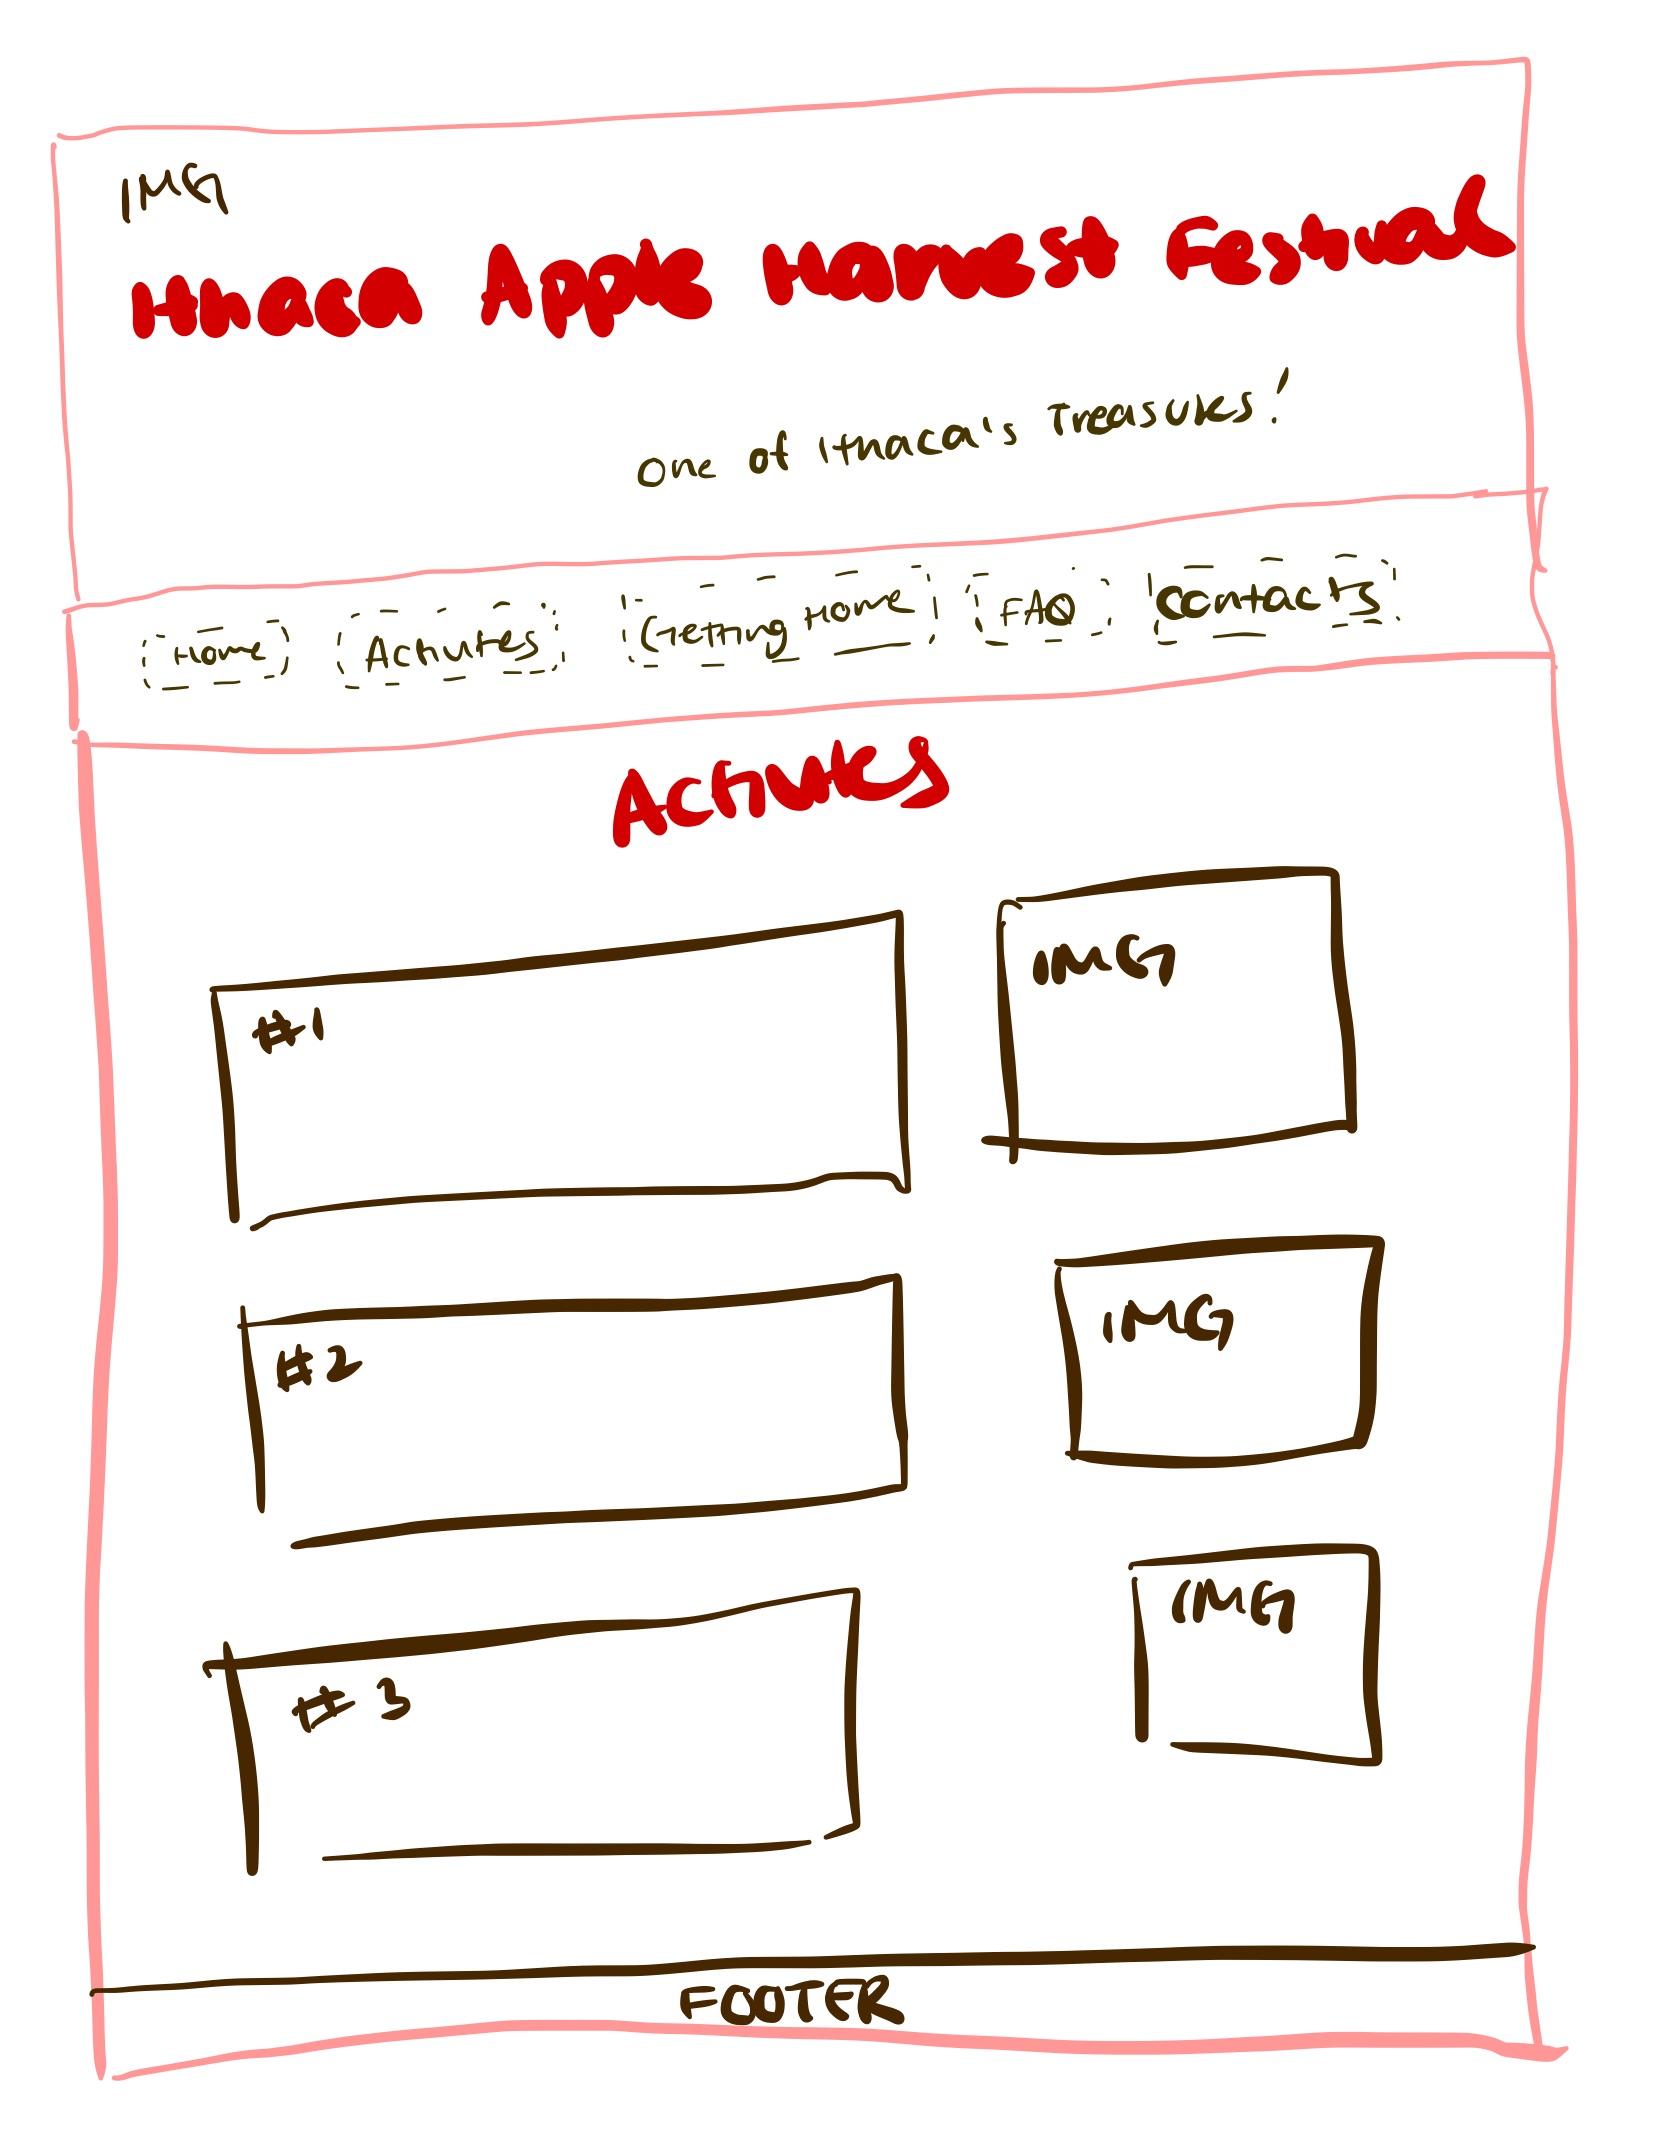 IMG
Ithaca Apple Harvest Festival
One of Ithaca's Treasures!
Home Activites Getting Home FAQ Contacts
Activites
#1 IMG
#2 IMG
#3 IMG
FOOTER